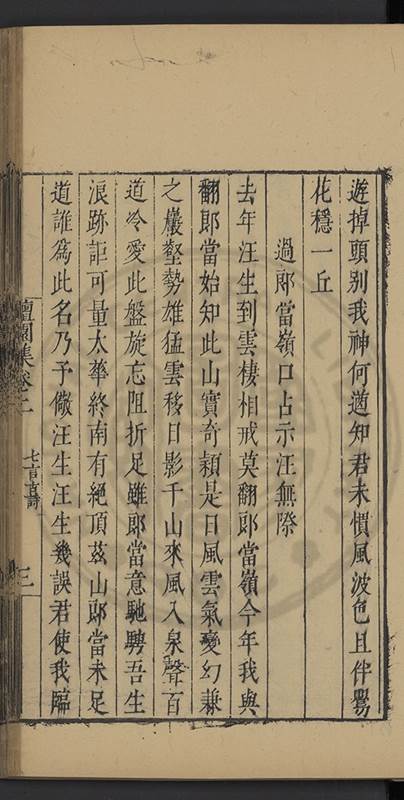 遊掉頭别我神何遒知君未慣風波色且伴鷗
花穩一丘
過郎當嶺口占示汪無際
去年汪生到雲棲相戒莫翻郎當嶺今年我與
翻郎當始知此山實奇穎是日風雲氣變幻兼
之巖壑勢雄猛雲移日影千山來風入泉聲百
道冷愛此盤旋忘阻折足雖郎當意馳騁吾生
浪跡詎可量太華終南有絕頂茲山郎當未足
道誰為此名乃予儆汪生汪生幾誤君使我臨
集卷二
七言古詩
三